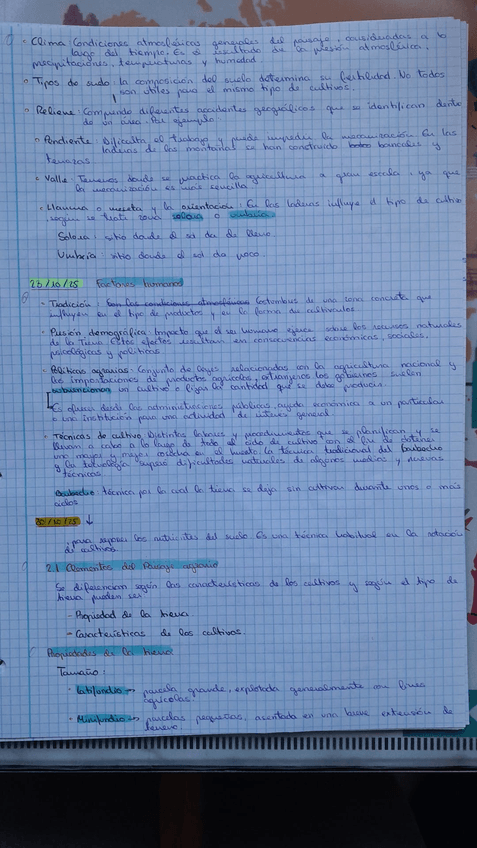 - Clima: Condiciones atmosféricas generales del paisaje, consideradas a lo
largo del tiempo. Es el resultado de la presión atmosférica,
precipitaciones, temperaturas y humedad.
- Tipos de suelo: la composición del suelo determina su fertilidad. No todos
son utiles para el mismo tipo de cultivos.
- Relieve: Comprende diferentes accidentes geográficos que se identifican dentro
de un area. Por ejemplo:
· Pendiente: Dificulta el trabajo y puede impedir la mecanización. En las
laderas de las montañas se han construido bancales y
terrazas
· Valle: Terrenos donde se practica la agricultura a gran escala, ya que
la mecanización es más sencilla
· Llanura o meseta y la orientación: En las laderas influye el tipo de cultivo
según se trate zona solana o umbría.
Solana: sitio donde el sol da de lleno
Umbría: sitio donde el sol da poco.
23/10/25 Factores humanos
· Tradición: Costumbres de una zona concreta que
influyen en el tipo de productos y en la forma de cultivarlos
· Presión demográfica: Impacto que el ser humano ejerce sobre los recursos naturales
de la Tierra. Estos efectos resultan en consecuencias económicas, sociales,
psicológicas y políticas.
· Políticas agrarias: Conjunto de leyes relacionadas con la agricultura nacional y
las importaciones de productos agrícolas, extranjeros los gobiernos suelen
subvencionar un cultivo o fijan la cantidad que se debe producir.
Es ofrecer desde las administraciones públicas, ayuda económica a un particular
o una institución para una actividad de interés general.
· Técnicas de cultivo: Distintas labores y procedimientos que se planifican y se
llevan a cabo a lo largo de todo el ciclo de cultivo con el fin de obtener
una mayor y mejor cosecha en el huerto. La técnica tradicional del Barbecho
y la tecnología supuso dificultades naturales de algunos medios y nuevas
técnicas.
Barbecho: técnica por la cual la tierra se deja sin cultivar durante unos o más
ciclos
30/10/25 ↓
, para reponer los nutrientes del suelo. Es una técnica habitual en la rotación
de cultivos.
2.1 Elementos del Paisaje agrario
Se diferencian según las características de los cultivos y según el tipo de
tierra pueden ser:
- Propiedad de la tierra
- Características de los cultivos.
Propiedades de la tierra
Tamaño:
· Latifundio → parcela grande, explotada generalmente con fines
agrícolas.
· Minifundio → parcelas pequeñas, asentada en una breve extensión de
terreno.